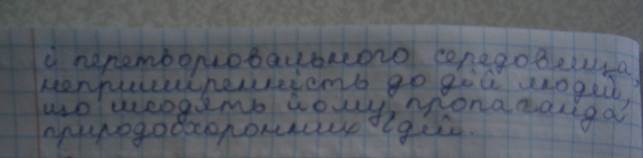 і перетворювального середовища,
непримиренність до дій людей,
що шкодять йому, пропаганда
природоохоронних ідей.